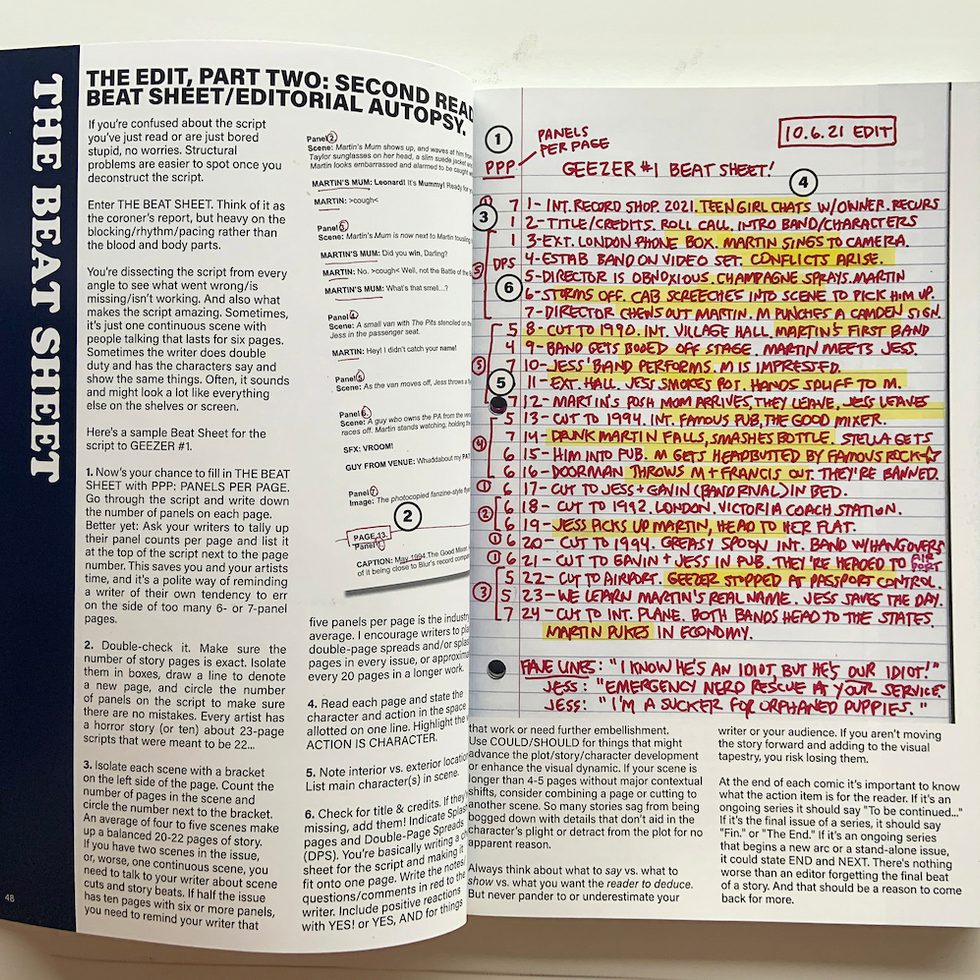 THE BEAT SHEET
THE EDIT, PART TWO: SECOND READ
BEAT SHEET/EDITORIAL AUTOPSY.
If you're confused about the script
you've just read or are just bored
stupid, no worries. Structural
problems are easier to spot once you
deconstruct the script.
Enter THE BEAT SHEET. Think of it as
the coroner's report, but heavy on the
blocking/rhythm/pacing rather than
the blood and body parts.
You're dissecting the script from every
angle to see what went wrong/is
missing/isn't working. And also what
makes the script amazing. Sometimes,
it's just one continuous scene with
people talking that lasts for six pages.
Sometimes the writer does double
duty and has the characters say and
show the same things. Often, it sounds
and might look a lot like everything
else on the shelves or screen.
Here's a sample Beat Sheet for the
script to GEEZER #1.
1. Now's your chance to fill in THE BEAT
SHEET with PPP: PANELS PER PAGE.
Go through the script and write down
the number of panels on each page.
Better yet: Ask your writers to tally up
their panel counts per page and list it
at the top of the script next to the page
number. This saves you and your artists
time, and it's a polite way of reminding
a writer of their own tendency to err
on the side of too many 6- or 7-panel
pages.
2. Double-check it. Make sure the
number of story pages is exact. Isolate
them in boxes, draw a line to denote
a new page, and circle the number
of panels on the script to make sure
there are no mistakes. Every artist
has a horror story (or ten) about 23-page
scripts that were meant to be 22...
3. Isolate each scene with a bracket
on the left side of the page. Count the
number of pages in the scene and
circle the number next to the bracket.
An average of four to five scenes make
up a balanced 20-22 pages of story.
If you have two scenes in the issue,
or, worse, one continuous scene, you
need to talk to your writer about scene
cuts and story beats. If half the issue
has ten pages with six or more panels,
you need to remind your writer that
48
Panel 2
Scene: Martin's Mum shows up, and waves at him from
Taylor sunglasses on her head, a slim suede jacket
Martin looks embarrassed and alarmed to be caught
MARTIN'S MUM: Leonard! It's Mummy! Ready for
MARTIN: >cough<
Panel 3
Scene: Martin's Mum is now next to Martin tousling
MARTIN'S MUM: Did you win, Darling?
MARTIN: No. >cough< Well, not the Battle of the
MARTIN'S MUM: What's that smell...?
Panel 4
Scene: A small van with The Pits stenciled on the
Jess in the passenger seat.
MARTIN: Hey! I didn't catch your name!
Panel 5
Scene: As the van moves off, Jess throws a
Panel 6
Scene: A guy who owns the PA from the
races off. Martin stands watching, holding the
SFX: VROOM!
GUY FROM VENUE: Whaddabout my PA
Panel 7
Image: The photocopied fanzine-style
2
PAGE 13
Panel 1
CAPTION: May 1994. The Good Mixer
of it being close to Blur's record
five panels per page is the industry
average. I encourage writers to
double-page spreads and/or splash
pages in every issue, or
every 20 pages in a longer work.
4. Read each page and state the
character and action in the space
allotted on one line. Highlight the
ACTION IS CHARACTER.
5. Note interior vs. exterior
List main character(s) in scene.
6. Check for title & credits. If they
missing, add them! Indicate Splash
pages and Double-Page Spreads
(DPS). You're basically writing a
sheet for the script and making it
fit onto one page. Write the notes/
questions/comments in red to the
writer. Include positive reactions
with YES! or YES, AND for things
1
PANELS
PER PAGE
10.6.21 EDIT
PPP
GEEZER #1 BEAT SHEET!
4
① 7 1- INT. RECORD SHOP. 2021. TEEN GIRL CHATS W/OWNER. RECURS
3 1 2- TITLE/CREDITS. ROLL CALL. INTRO BAND/CHARACTERS
1 3- EXT. LONDON PHONE BOX. MARTIN SINGS TO CAMERA.
DPS 4- ESTAB BAND ON VIDEO SET. CONFLICTS ARISE.
⑤ 5- DIRECTOR IS OBNOXIOUS. CHAMPAGNE SPRAYS MARTIN
6 6- STORMS OFF. CAB SCREECHES INTO SCENE TO PICK HIM UP.
7- DIRECTOR CHEWS OUT MARTIN. M PUNCHES A CAMDEN SIGN
5 8- CUT TO 1990. INT. VILLAGE HALL MARTIN'S FIRST BAND
4 9- BAND GETS BOOED OFF STAGE. MARTIN MEETS JESS.
⑤ 7 10- JESS' BAND PERFORMS. M IS IMPRESSED.
5 11- EXT. HALL. JESS SMOKES POT. HANDS SPLIFF TO M.
7 12- MARTIN'S POSH MOM ARRIVES, THEY LEAVE, JESS LEAVES
5 13- CUT TO 1994. INT. FAMOUS PUB, THE GOOD MIXER.
7 14- DRUNK MARTIN FALLS, SMASHES BOTTLE. STELLA GETS
④ 6 15- HIM INTO PUB. M GETS HEADBUTTED BY FAMOUS ROCK☆
6 16- DOORMAN THROWS M + FRANCIS OUT. THEY'RE BANNED.
① 6 17- CUT TO JESS + GAVIN (BAND RIVAL) IN BED.
② 6 18- CUT TO 1992. LONDON. VICTORIA COACH STATION.
6 19- JESS PICKS UP MARTIN, HEAD TO HER FLAT.
① 6 20- CUT TO 1994. GREASY SPOON INT. BAND W/HANGOVERS
① 6 21- CUT TO GAVIN + JESS IN PUB. THEY'RE HEADED TO AIRPORT
5 22- CUT TO AIRPORT. GEEZER STOPPED AT PASSPORT CONTROL.
③ 5 23- WE LEARN MARTIN'S REAL NAME. JESS SAVES THE DAY.
7 24- CUT TO INT. PLANE. BOTH BANDS HEAD TO THE STATES.
MARTIN PUKES IN ECONOMY.
FAVE LINES: "I KNOW HE'S AN IDIOT, BUT HE'S OUR IDIOT!"
JESS: "EMERGENCY NERD RESCUE AT YOUR SERVICE"
JESS: "I'M A SUCKER FOR ORPHANED PUPPIES."
that work or need further embellishment.
Use COULD/SHOULD for things that might
advance the plot/story/character development
or enhance the visual dynamic. If your scene is
longer than 4-5 pages without major contextual
shifts, consider combining a page or cutting to
another scene. So many stories sag from being
bogged down with details that don't aid in the
character's plight or detract from the plot for no
apparent reason.
Always think about what to say vs. what to
show vs. what you want the reader to deduce.
But never pander to or underestimate your
writer or your audience. If you aren't moving
the story forward and adding to the visual
tapestry, you risk losing them.
At the end of each comic it's important to know
what the action item is for the reader. If it's an
ongoing series it should say "To be continued..."
If it's the final issue of a series, it should say
"Fin." or "The End." If it's an ongoing series
that begins a new arc or a stand-alone issue,
it could state END and NEXT. There's nothing
worse than an editor forgetting the final beat
of a story. And that should be a reason to come
back for more.